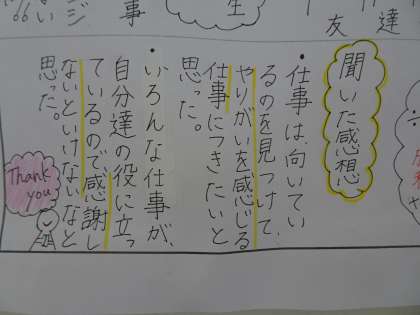 友達
生
事
聞いた感想
・仕事は、向いてい
るのを見つけて、
やりがいを感じる
仕事につきたいと
思った。
・いろんな仕事が、
自分達の役に立っ
ているので感謝し
ないといけないなと
思った。
Thank
you